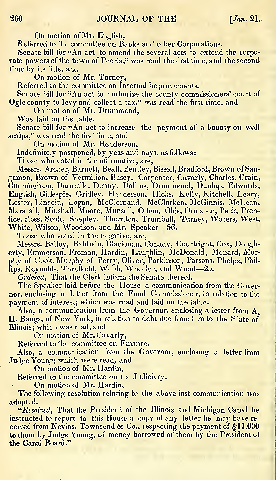 260 JOURNAL OF THE [Jan. 21.
On motion of Mr. English,
Referred to the committee on Banks and other Corporations.
Senate bill for "An act to amend the several acts to extend the corporate powers of the town of Peoria," was read the first time, and the second time by its title, and,
On motion of Mr. Turney,
Referred to the committee on Internal Improvements.
Senate bill for "An act to authorise the county commissioners' court of Ogle county to levy and collect a tax," was read the first time, and
On motion of Mr. Drummond,
Was laid on the table.
Senate bill for "An act to increase the payment of a bounty on wolf scalps," was read the first time, and
On motion of Mr. Henderson,
Indefinitely postponed, by yeas and nays, as follows:
Those who voted in the affirmative, are,
Messrs. Archer, Barnett, Beall, Bentley, Bissell, Bradford, Brown of
Brown of Vermilion, Busey, Carpenter, Caverly, Charles, Crain,
Cunningham, Darnielle, Denny, Dollins, Drummond, Dunlap, Edwards,
English, Gillespie, Gridley, Henderson, Hicks, Kelly, Kitchell, Leary,
Lester, Lincoln, Logan, McClernand, McClurken, McGinnis, McLean,
Marshall, Minshall, Moore, Murphy
White, Wilson, Woodson, and Mr. Speaker—56.
Those who voted in the negative, are,
Messrs. Bailey, Baldwin, Blackman, Canady, Courtright, Cox, Dougherty, Emmerson, Froman, Hardin, Laughlin, McDonald, Menard, Murphy of Cook, Murphy of Perry, Oliver, Parkinson, Parsons, Phelps, Phillips, Reynolds,
Ordered, That the Clerk inform the Senate thereof.
The Speaker laid before the House a communication from the Governor, enclosing a letter from the Fund Commissioner, in relation to the payment of interest; which was read and laid on the table.
Also, a communication from the Governor, enclosing a letter from A.
H. Bangs, of New York, in relation to debt due from him to the State of Illinois; which was read, and
On motion of Mr. Caverly,
Referred to the committee on Finance.
Also, a communication from the Governor, enclosing a letter from Judge Young; which were read, and
On motion of Mr. Hardin,
Referred to the committee on the Judiciary.
On motion of Mr. Hardin,
The following resolution relating to the above last communication was adopted.
"Resolved, That the President of the Illinois and Michigan Canal be instructed to report to this House a copy of any letter he may have received from Nevins, Townsend & Co., respecting the payment of $11,000 to them by Judge Young, of money borrowed of them by the President of the Canal Board."